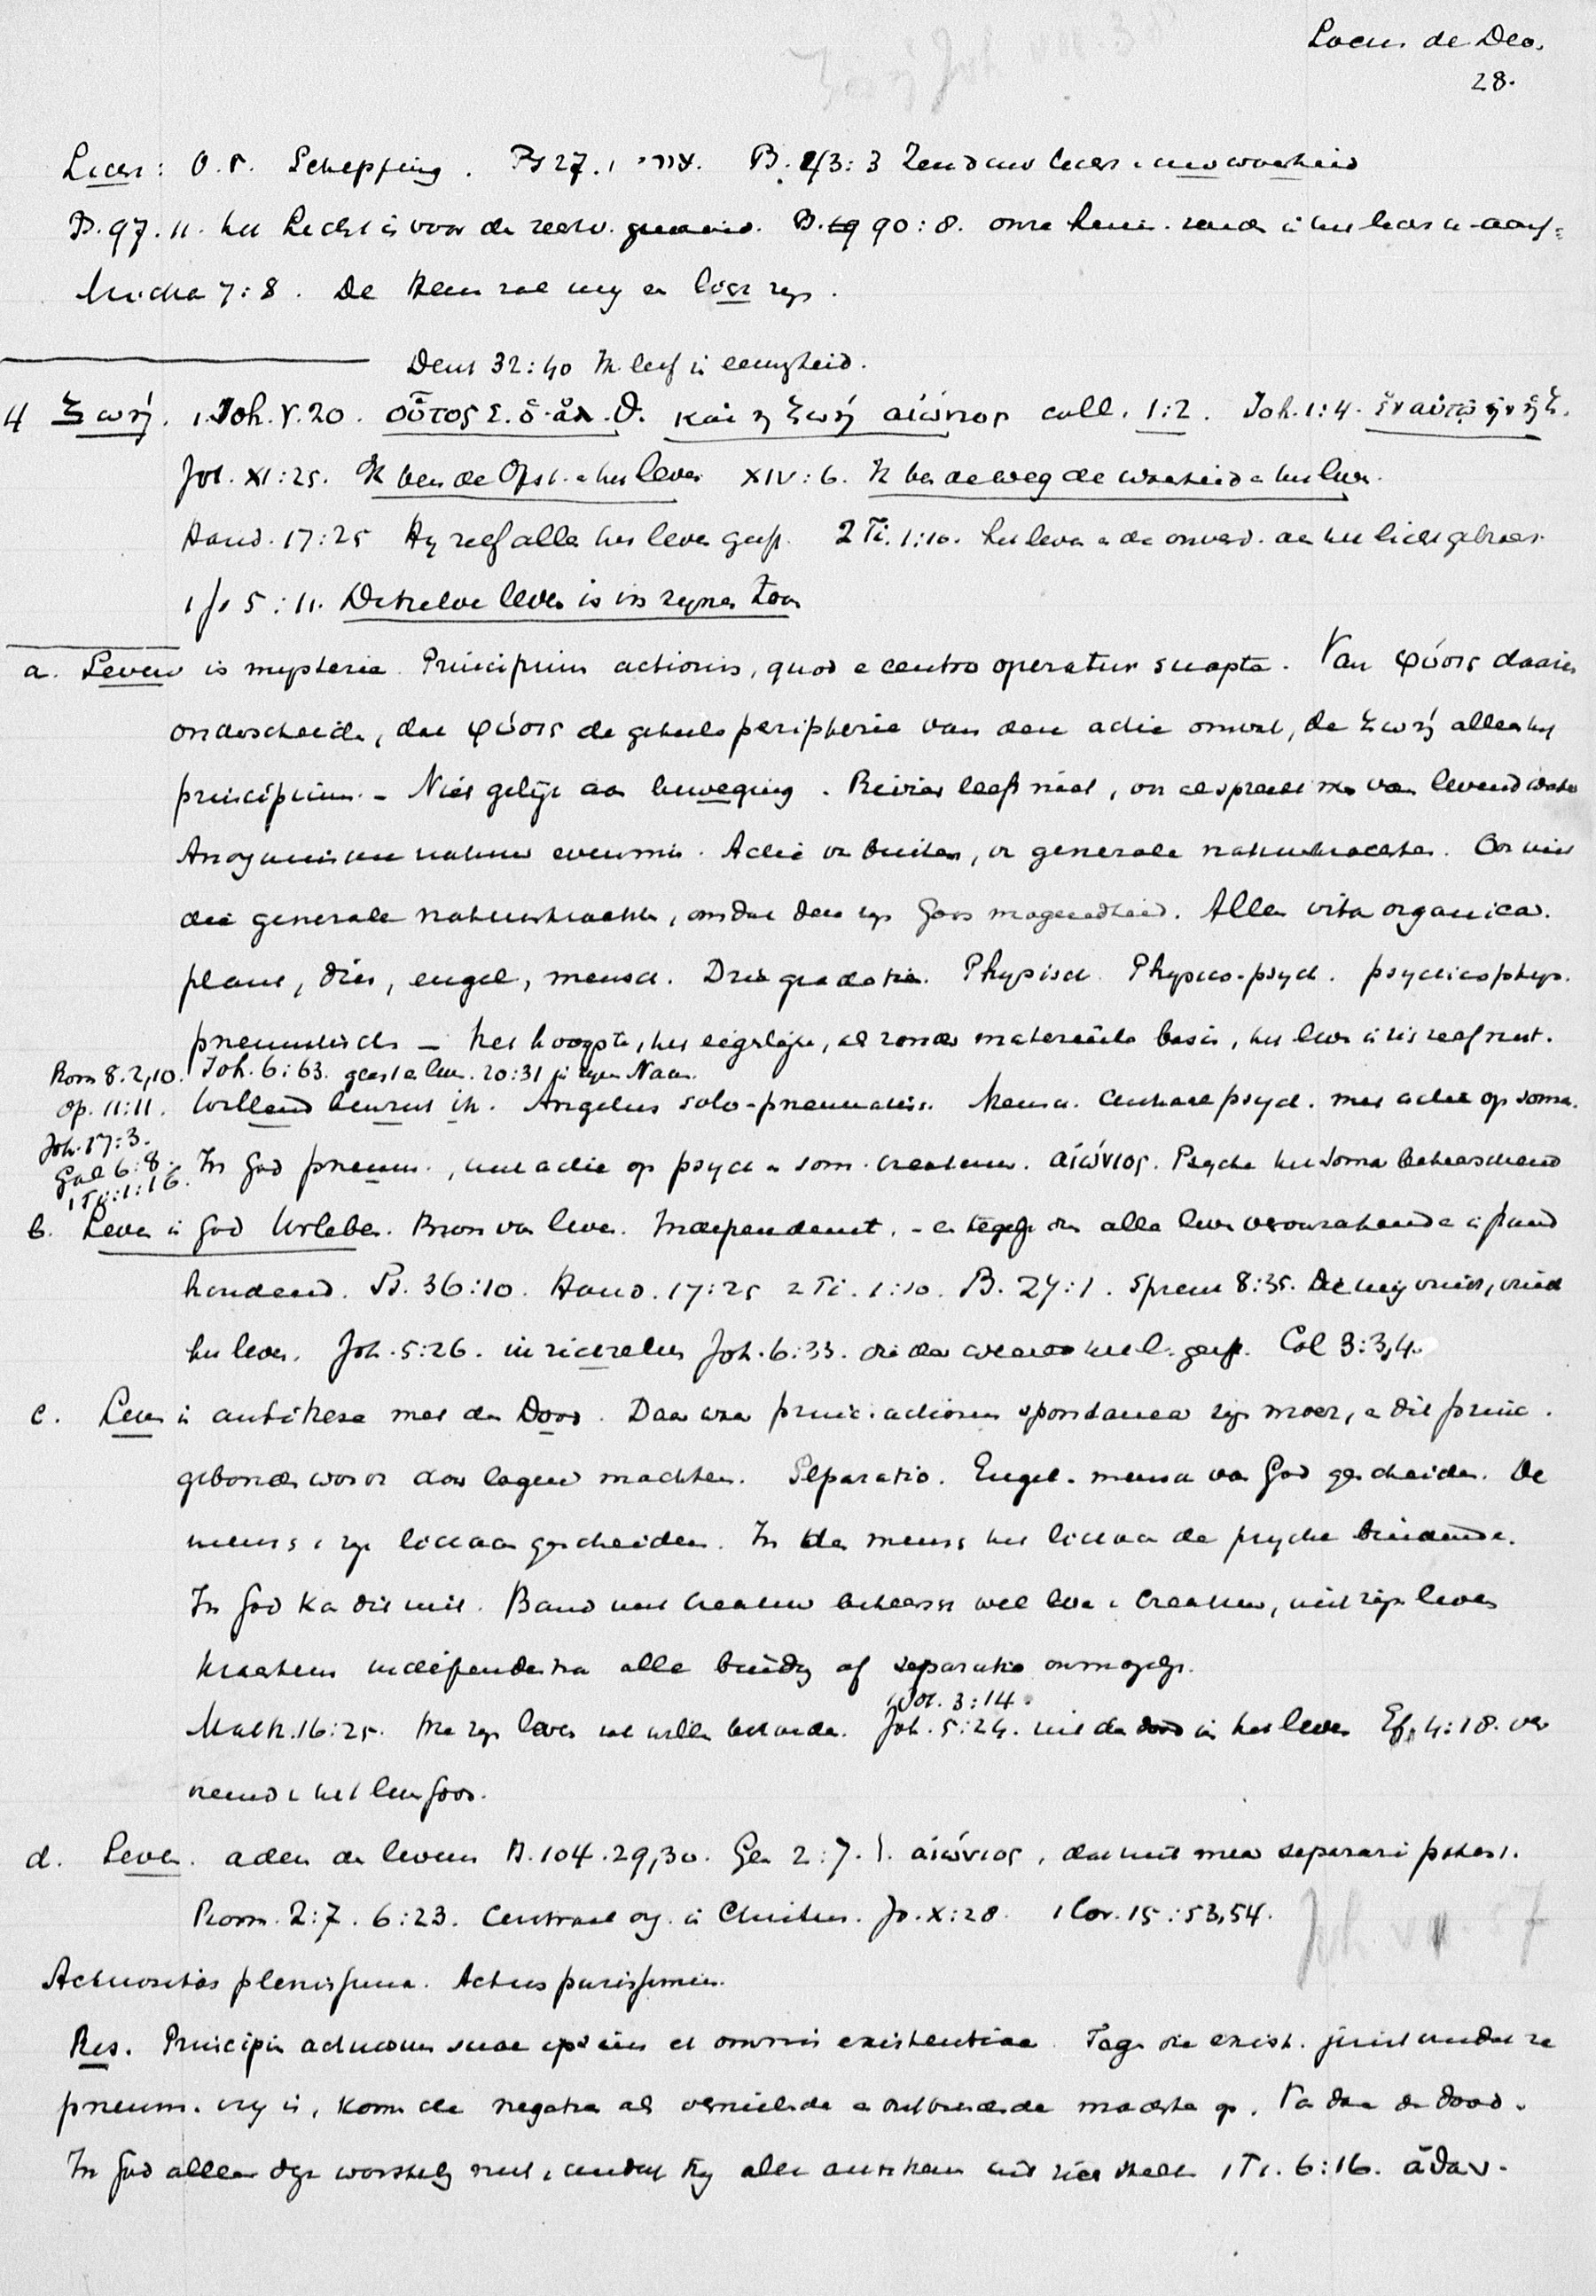 Locus de Deo.
28.
Licht: O.T. Schepping. Ps 27.1 אור. Ps. 43:3 Zend uw licht en uw waarheid
Ps. 97.11. het Licht is voor den rechtv. gezaaid. Ps. 90:8. onze heim. zonden in het licht uws aansch.
Micha 7:8. De Heer zal mij een licht zijn.
Deut 32:40 Ik leef in eeuwigheid.
4 Ζωή. 1 Joh. V.20. οὗτός ἐ. ὁ ἀλ. Θ. καὶ ἡ ζωὴ αἰώνιος coll. 1:2. Joh. 1:4. ἐν αὐτῷ ἦν ἡ ζ.
Joh. XI:25. Ik ben de Opst. en het leven XIV:6. Ik ben de weg de waarheid en het leven.
Hand. 17:25 Hij zelf allen het leven geeft. 2 Ti. 1:10. het leven en de onverd. aan het licht gebracht.
1 Jo 5:11. Ditzelve leven is in zijnen Zoon
a. Leven is mysterie. Principium actionis, quod e centro operatur suapte. Van φύσις daarin
onderscheiden, dat φύσις de geheele peripherie van den actie omvat, de ζωή alleen het
principium. - Niet gelijk aan beweging. Rivier leeft niet, en al spreekt men van levend water
Anorganische natuur evenmin. Actie van buiten, van generale natuurkrachten. Ook niet
die generale natuurkrachten, omdat deze zijn Gods mogendheid. Alleen vita organica.
plant, dier, engel, mensch. Drie gradatien. Physisch. Physico-psych. psychicophys.
pneumatisch - het hoogste, het eigenlijke, als zonder materieele basis, het leven in zichzelf rust.
Rom 8.2,10. Joh. 6:63. geest en leven. 20:31 in zijn Naam.
Op. 11:11. Willend bewust ik. Angelus solo-pneumatisch. Mensch. Centraal psych. met actie op soma.
Joh. 17:3.
Gal 6:8.
1 Ti: 1:16.
In God pneum., met actie op psych en som. creatuur. αἰώνιος. Psyche het soma beheerschend
b. Leven in God Urleben. Bron van leven. Independent, - en tegelijk al alle leven veroorzakende en in stand
houdend. Ps. 36:10. Hand. 17:25 2 Ti. 1:10. Ps. 27:1. Spreuk 8:35. Die mij vindt, vindt
het leven. Joh. 5:26. in zichzelven Joh. 6:33. die der wereld het l. geeft. Col 3:3,4.
c. Leven in antithese met den Dood. Daar waar princ. actionis spontanea zijn moet, en dit princ.
gebonden wordt door lagere machten. Separatio. Engel en mensch van God gescheiden. De
mensch en zijn lichaam gescheiden. In den mensch het lichaam de psyche bindende.
In God kan dit niet. Band met creatuur beheerscht wel leven in creatuur, niet zijn leven
krachtens independentia alle binding of separatio onmogelijk.
1 Jo. 3:14.
Matth. 16:25. Wie zijn leven zal willen behouden. Joh. 5:24. uit den dood in het leven Ef. 4:18. ver
vreemd v. het leven Gods.
d. Leven. adem des levens Ps. 104.29,30. Gen 2:7. l. αἰώνιος, dat niet meer separari potest.
Rom. 2:7. 6:23. Centraal org. in Christus. Jo. X:28. 1 Cor. 15:53,54.
Actuositas plenissima. Actus purissimus.
Res. Principium actuosum suae ipsius et omnis existentiae. Tegen die exist. juist omdat ze
pneum. vrij is, komt de negatie als vernielende en ontbindende macht op. Van daar de dood.
In God alleen deze worsteling niet, omdat Hij alle antithese uit zich stelt 1 Ti. 6:16. ἀθαν.